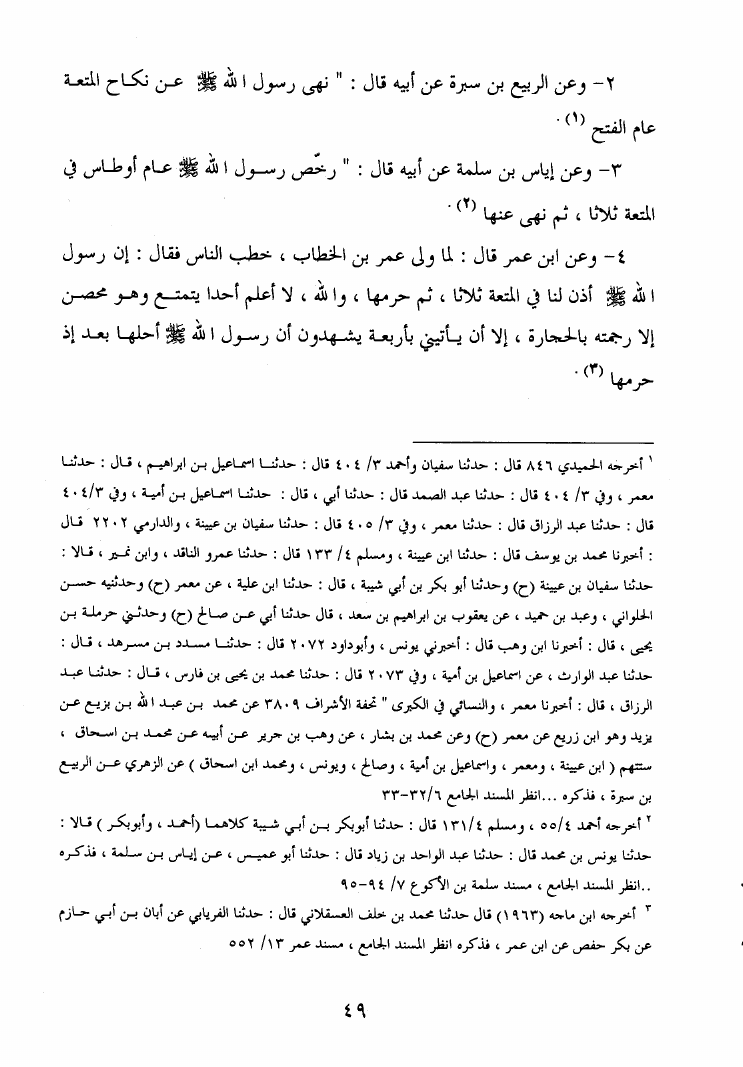 ٢- وعن الربيع بن سبرة عن أبيه قال : " نهى رسول الله ﷺ عن نكاح المتعة
عام الفتح (١) .
٣- وعن إياس بن سلمة عن أبيه قال : " رخّص رسول الله ﷺ عام أوطاس في
المتعة ثلاثا ، ثم نهى عنها (٢) .
٤- وعن ابن عمر قال : لما ولى عمر بن الخطاب ، خطب الناس فقال : إن رسول
الله ﷺ أذن لنا في المتعة ثلاثا ، ثم حرمها ، والله ، لا أعلم أحدا يتمتع وهو محصن
إلا رجمته بالحجارة ، إلا أن يأتيني بأربعة يشهدون أن رسول الله ﷺ أحلها بعد إذ
حرمها (٣) .
١ أخرجه الحميدي ٨٤٦ قال : حدثنا سفيان وأحمد ٣/ ٤٠٤ قال : حدثنا اسماعيل بن ابراهيم ، قال : حدثنا
معمر ، وفي ٣/ ٤٠٤ قال : حدثنا عبد الصمد قال : حدثنا أبي ، قال : حدثنا اسماعيل بن أمية ، وفي ٤٠٤/٣
قال : حدثنا عبد الرزاق قال : حدثنا معمر ، وفي ٣/ ٤٠٥ قال : حدثنا سفيان بن عيينة ، والدارمي ٢٢٠٢ قال
: أخبرنا محمد بن يوسف قال : حدثنا ابن عيينة ، ومسلم ٤/ ١٣٣ قال : حدثنا عمرو الناقد ، وابن نمير ، قالا :
حدثنا سفيان بن عيينة (ح) وحدثنا أبو بكر بن أبي شيبة ، قال : حدثنا ابن علية ، عن معمر (ح) وحدثنيه حسن
الحلواني ، وعبد بن حميد ، عن يعقوب بن ابراهيم بن سعد ، قال حدثنا أبي عن صالح (ح) وحدثني حرملة بن
يحيى ، قال : أخبرنا ابن وهب قال : أخبرني يونس ، وأبوداود ٢٠٧٢ قال : حدثنا مسدد بن مسرهد ، قال :
حدثنا عبد الوارث ، عن اسماعيل بن أمية ، وفي ٢٠٧٣ قال : حدثنا محمد بن يحيى بن فارس ، قال : حدثنا عبد
الرزاق ، قال : أخبرنا معمر ، والنسائي في الكبرى " تحفة الأشراف ٣٨٠٩ عن محمد بن عبد الله بن بزيع عن
يزيد وهو ابن زريع عن معمر (ح) وعن محمد بن بشار ، عن وهب بن جرير عن أبيه عن محمد بن اسحاق ،
ستتهم ( ابن عيينة ، ومعمر ، واسماعيل بن أمية ، وصالح ، ويونس ، ومحمد ابن اسحاق ) عن الزهري عن الربيع
بن سبرة ، فذكره ...انظر المسند الجامع ٣٢/٦-٣٣
٢ أخرجه أحمد ٥٥/٤ ، ومسلم ١٣١/٤ قال : حدثنا أبوبكر بن أبي شيبة كلاهما (أحمد ، وأبوبكر ) قالا :
حدثنا يونس بن محمد قال : حدثنا عبد الواحد بن زياد قال : حدثنا أبو عميس ، عن إياس بن سلمة ، فذكره
..انظر المسند الجامع ، مسند سلمة بن الأكوع ٧/ ٩٤-٩٥
٣ أخرجه ابن ماجه (١٩٦٣) قال حدثنا محمد بن خلف العسقلاني قال : حدثنا الفريابي عن أبان بن أبي حازم
عن بكر حفص عن ابن عمر ، فذكره انظر المسند الجامع ، مسند عمر ١٣/ ٥٥٢
٤٩